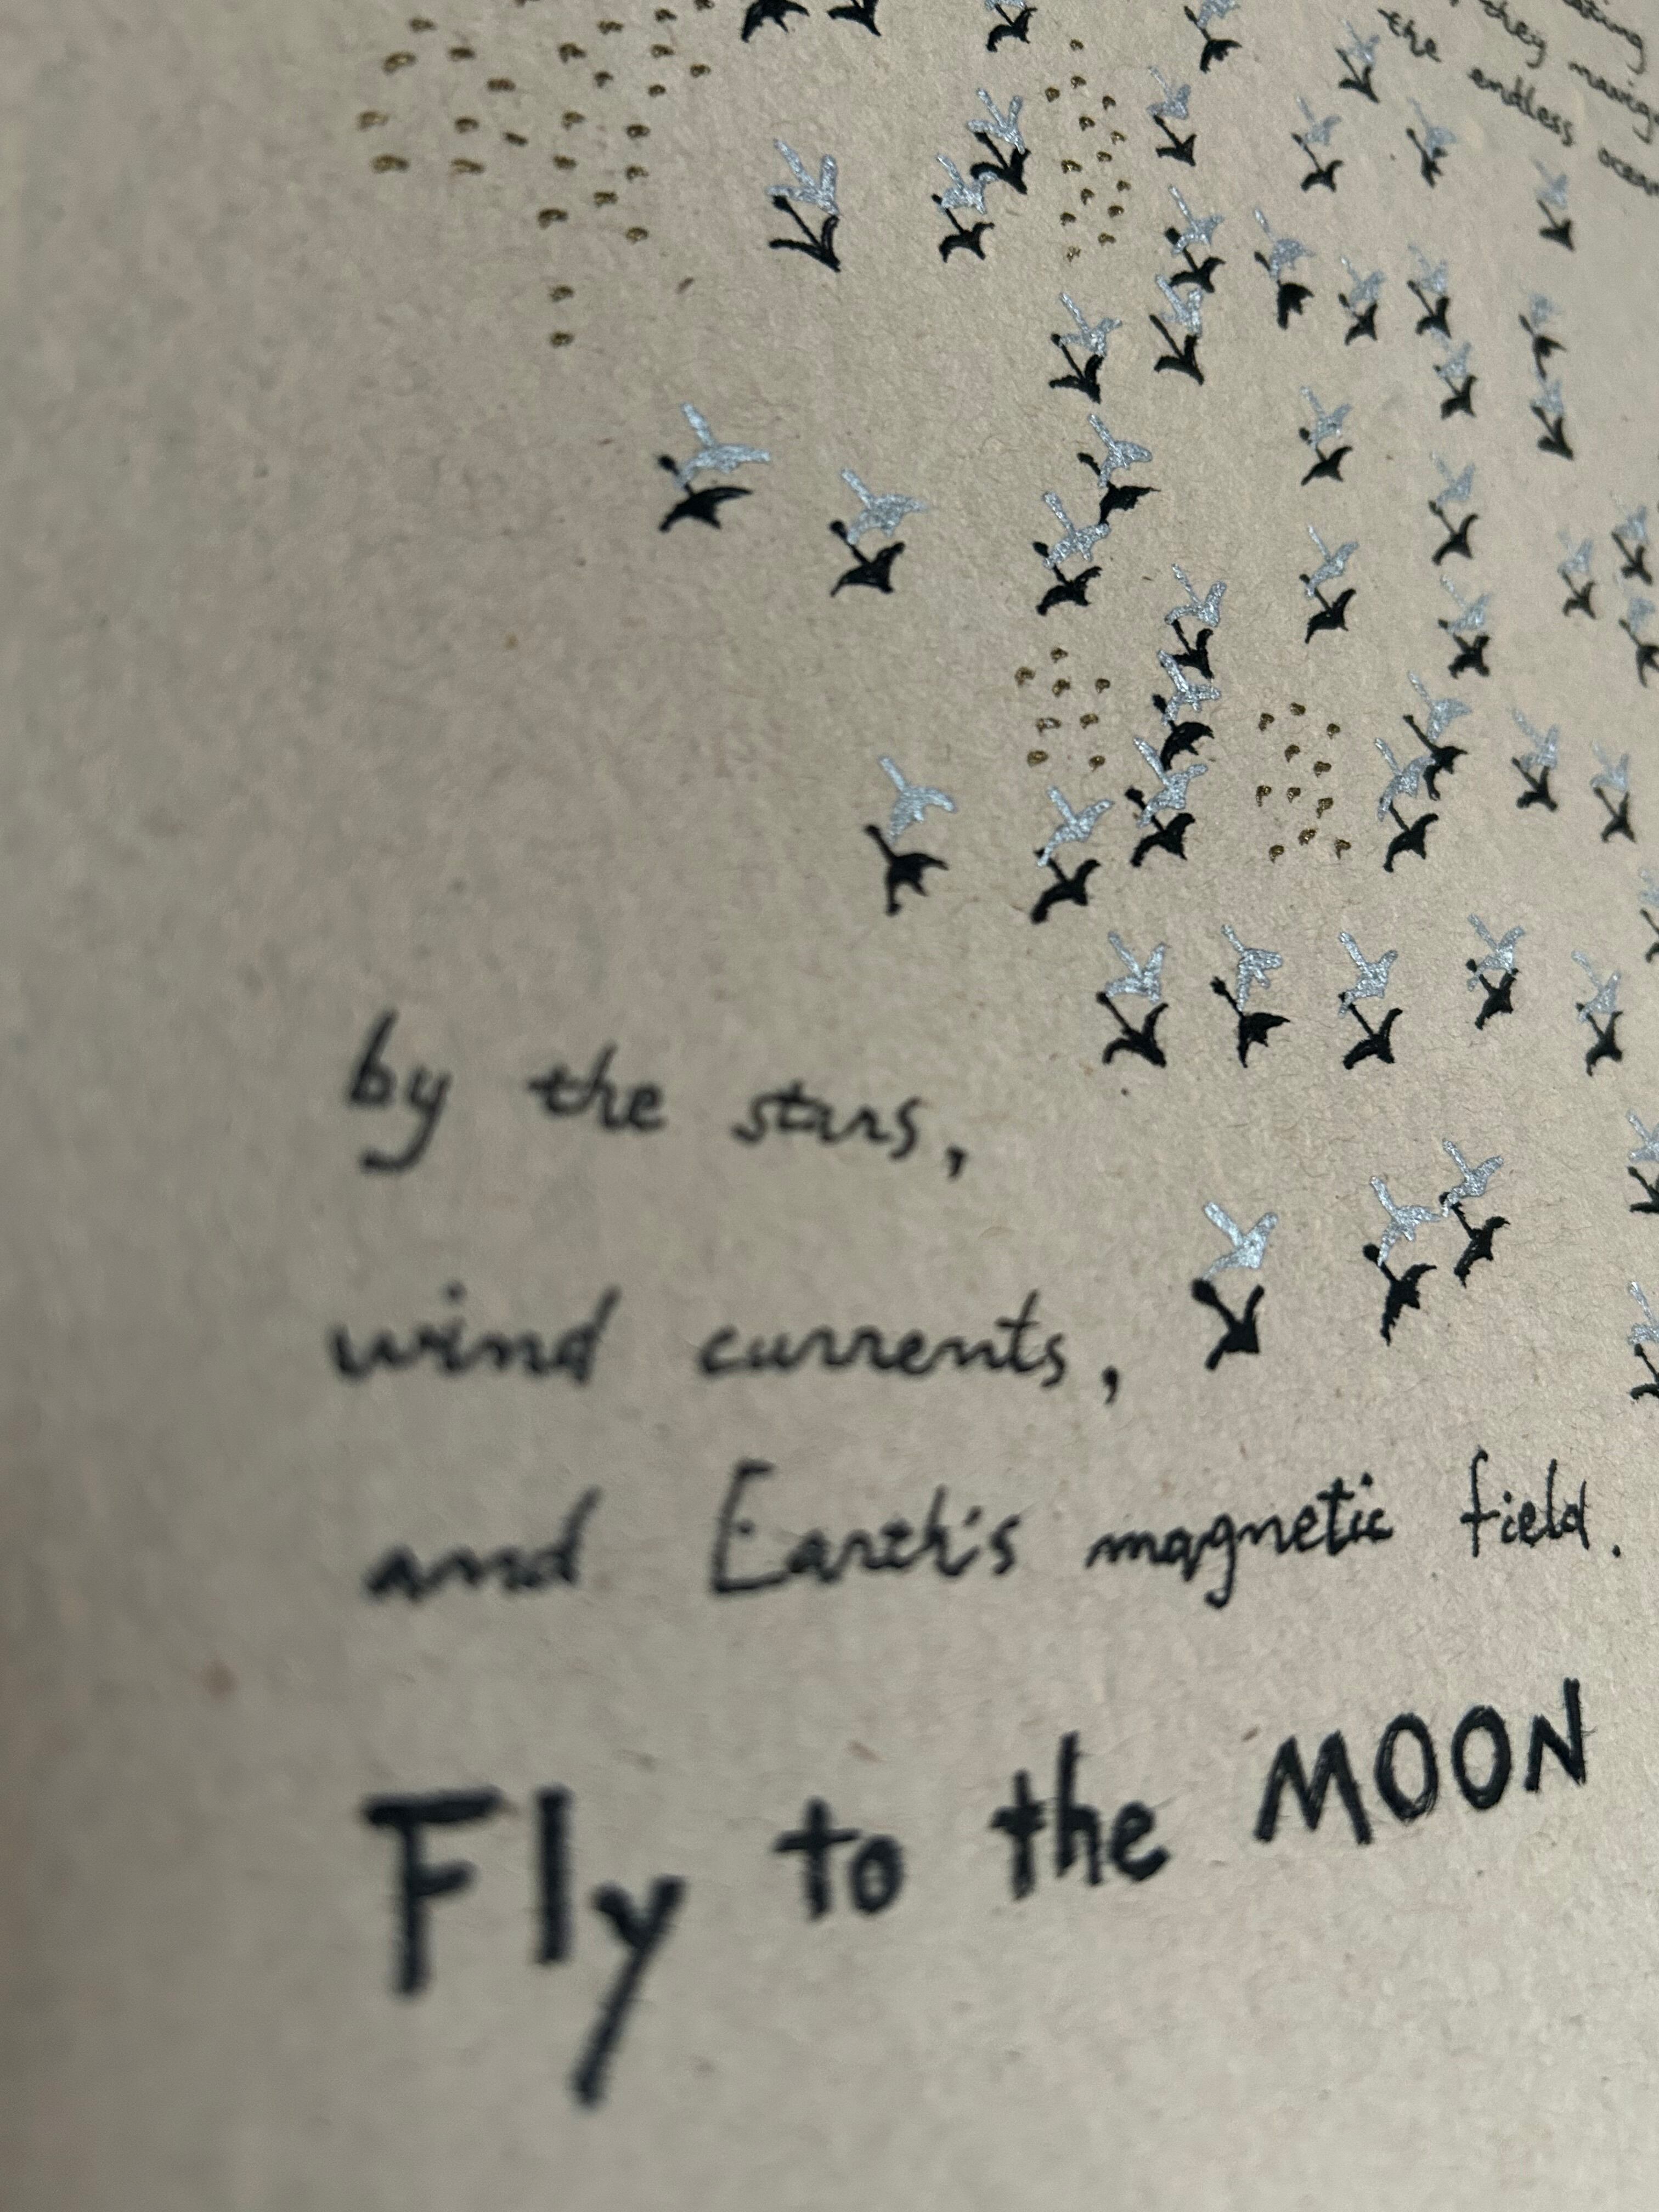 they
the endless
by the stars,
wind currents,
and Earth's magnetic field.
Fly to the MOON